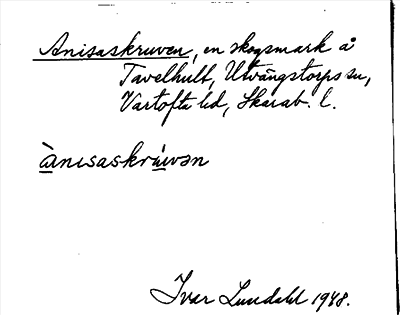 Anisaskruven, en skogsmark å
Tavelhult, Utvängstorps sn,
Vartofta hd, Skarab. l.
ànisaskrúvən
Ivar Lundahl 1948.